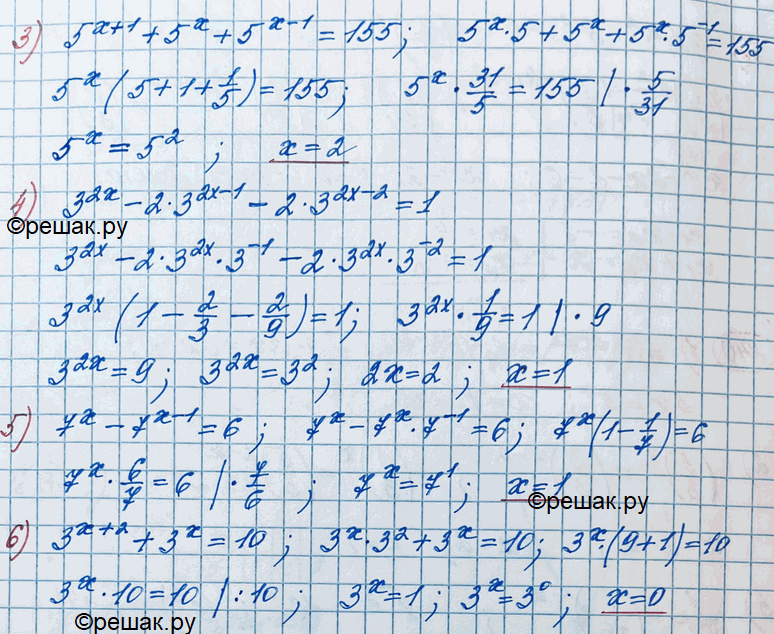 3) 5^(x+1) + 5^x + 5^(x-1) = 155; 5^x · 5 + 5^x + 5^x · 5^(-1) = 155
5^x (5 + 1 + 1/5) = 155; 5^x · 31/5 = 155 | · 5/31
5^x = 5^2 ; x = 2
4) 3^(2x) - 2 · 3^(2x-1) - 2 · 3^(2x-2) = 1
©решак.ру
3^(2x) - 2 · 3^(2x) · 3^(-1) - 2 · 3^(2x) · 3^(-2) = 1
3^(2x) (1 - 2/3 - 2/9) = 1; 3^(2x) · 1/9 = 1 | · 9
3^(2x) = 9; 3^(2x) = 3^2; 2x = 2 ; x = 1
5) 7^x - 7^(x-1) = 6 ; 7^x - 7^x · 7^(-1) = 6; 7^x (1 - 1/7) = 6
7^x · 6/7 = 6 | · 7/6 ; 7^x = 7^1; x = 1
©решак.ру
6) 3^(x+2) + 3^x = 10; 3^x · 3^2 + 3^x = 10; 3^x · (9+1) = 10
3^x · 10 = 10 | : 10; 3^x = 1; 3^x = 3^0; x = 0
©решак.ру